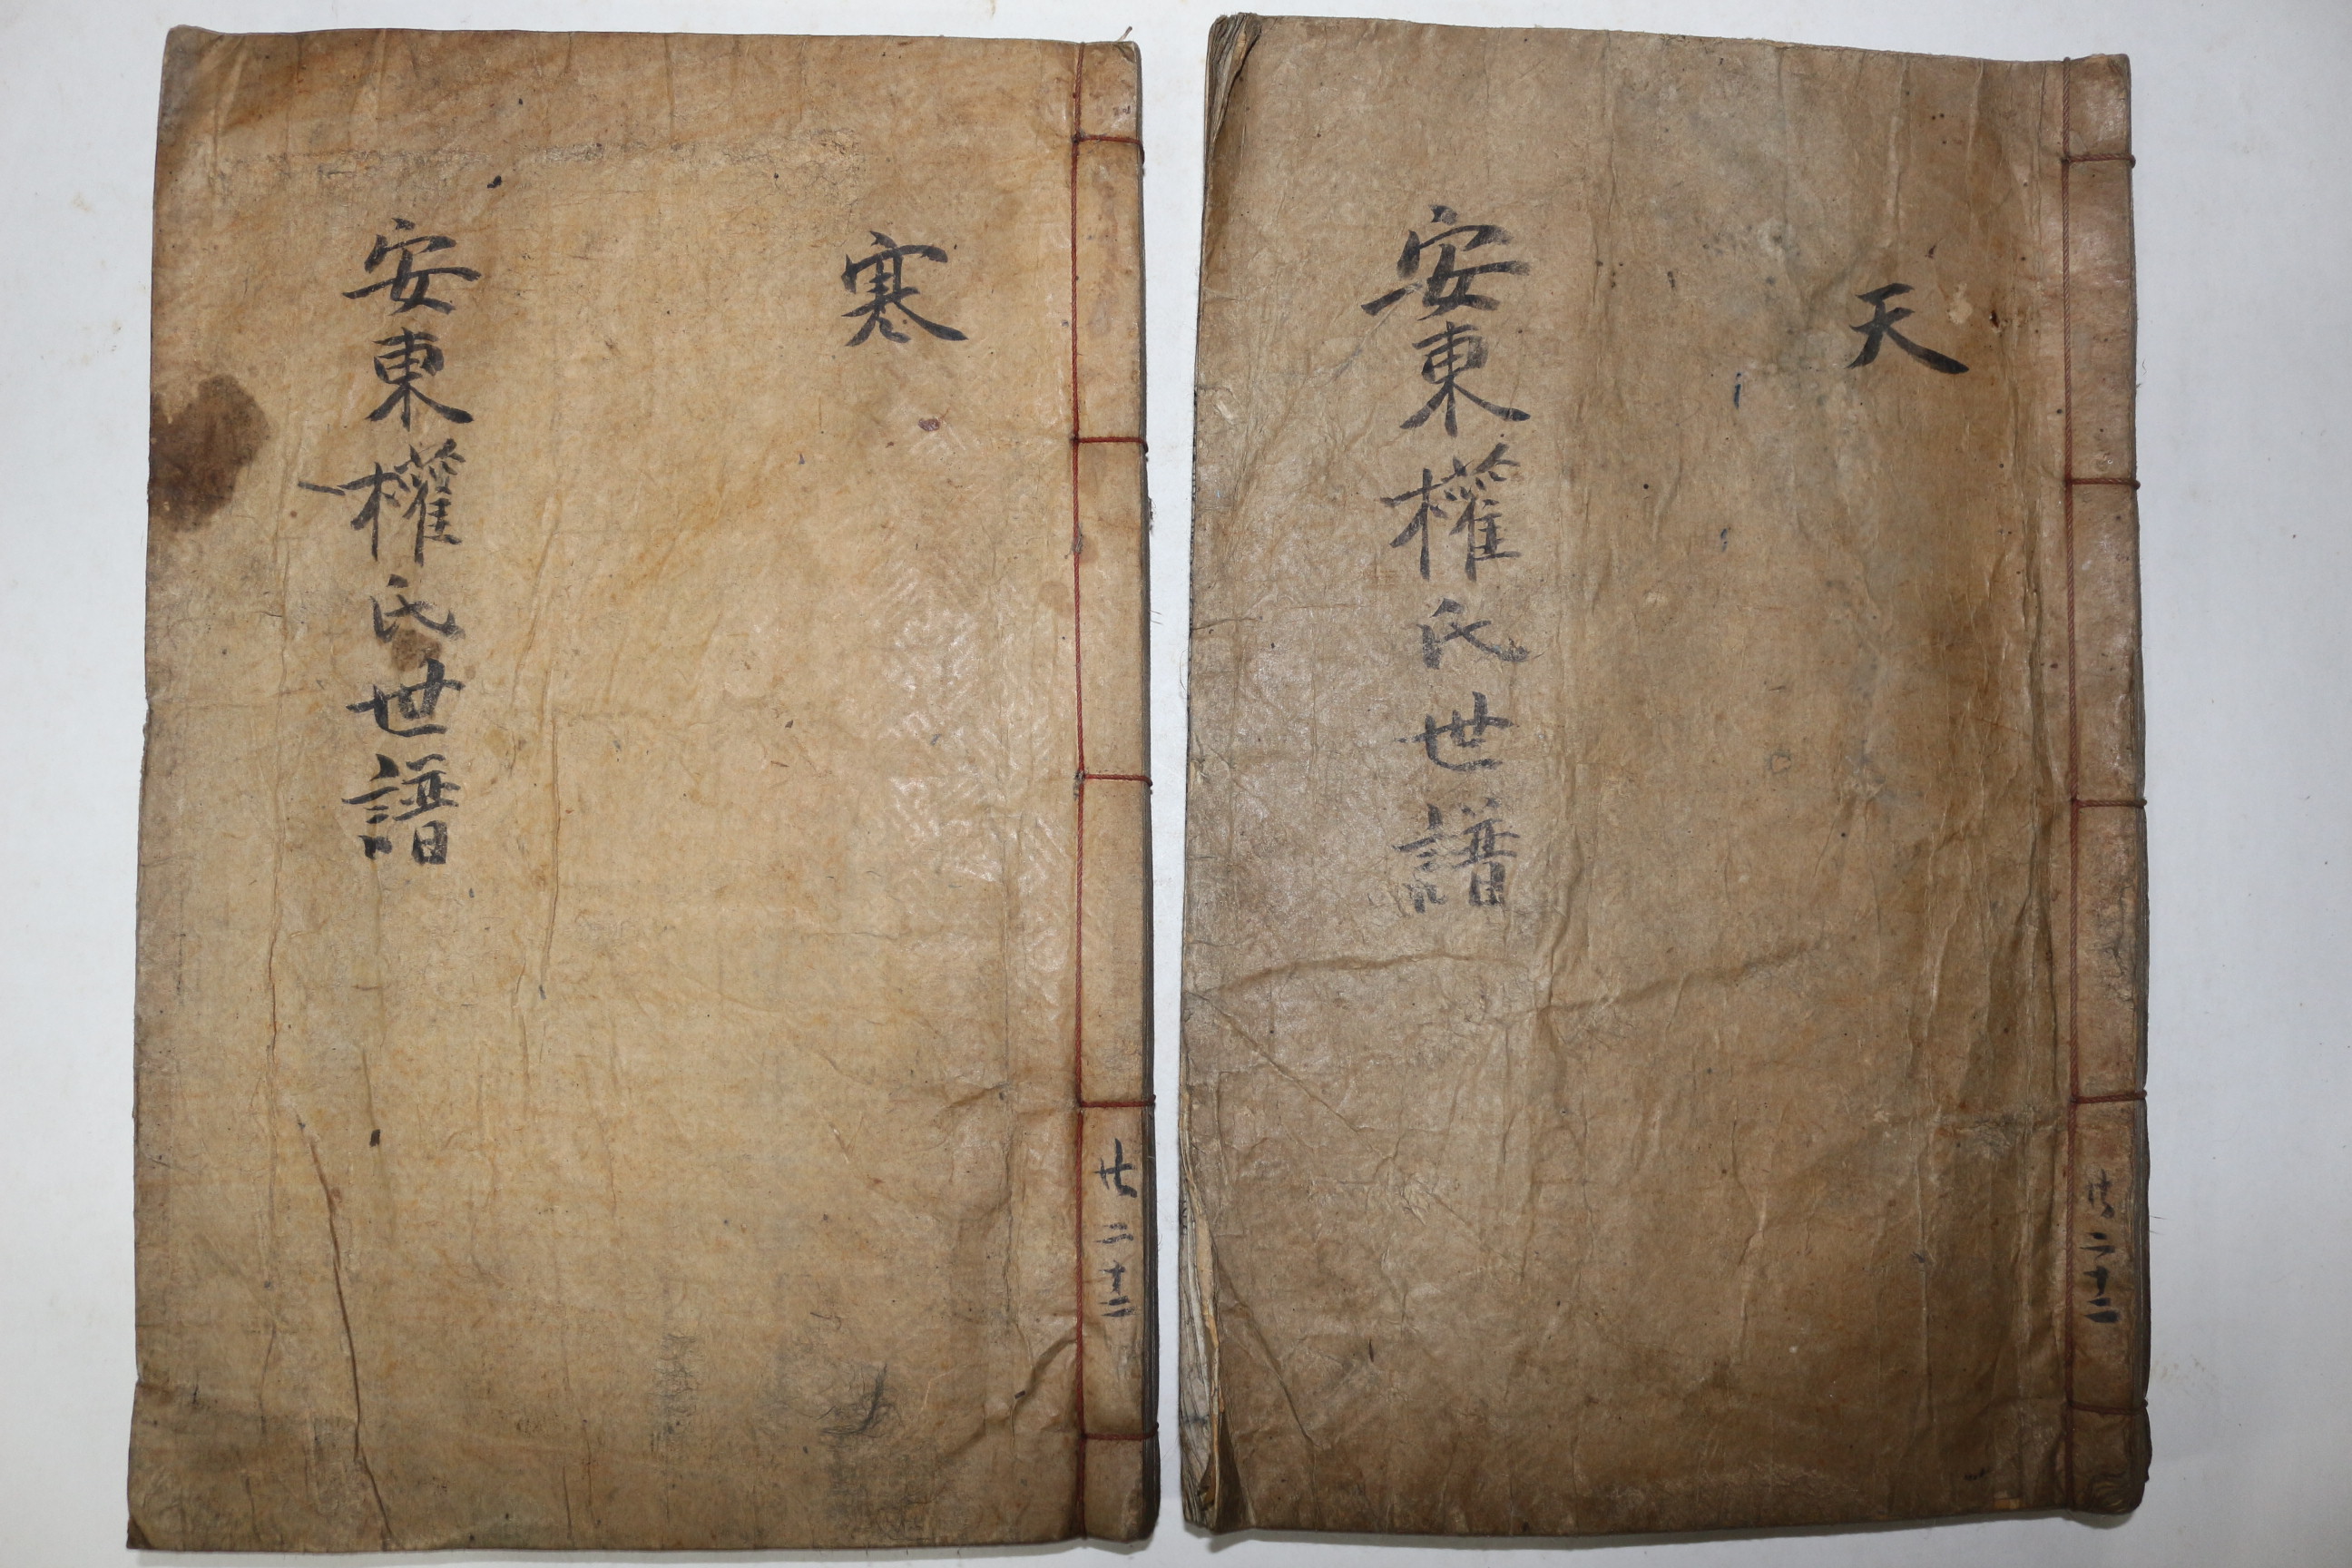 天
安東權氏世譜
共二十二
寒
安東權氏世譜
共二十二